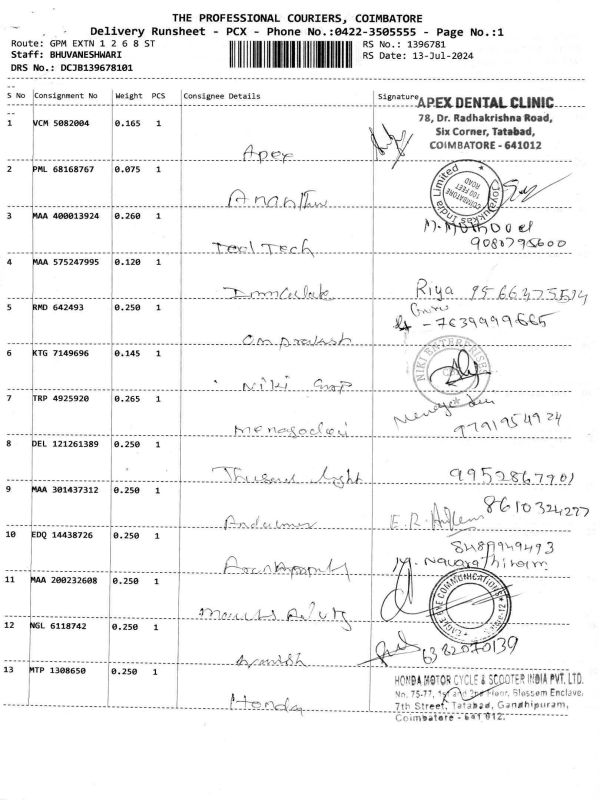 THE PROFESSIONAL COURIERS, COIMBATORE
Delivery Runsheet - PCX - Phone No.:0422-3505555 - Page No.:1
Route: GPM EXTN 1 2 6 8 ST
RS No.: 1396781
Staff: BHUVANESHWARI
RS Date: 13-Jul-2024
DRS No.: DCJB139678101
S No Consignment No Weight PCS Consignee Details Signature
APEX DENTAL CLINIC
78, Dr. Radhakrishna Road,
Six Corner, Tatabad,
COIMBATORE - 641012
1 VCM 5082004 0.165 1
Apex
2 PML 68168767 0.075 1
Joyalukkas India Limited
100 FEET ROAD
COIMBATORE
Ananthu
3 MAA 400013924 0.260 1
9080795600
Teel Tech
4 MAA 575247995 0.120 1
Immculate
Riya 9566475514
5 RMD 642493 0.250 1
Guru
- 7639999665
Om prakash
6 KTG 7149696 0.145 1
NIKI ENTERPRISE
Niki Grop
7 TRP 4925920 0.265 1
9791954924
8 DEL 121261389 0.250 1
Thusand light
9952867901
9 MAA 301437312 0.250 1
8610324277
E.R.
10 EDQ 14438726 0.250 1
8489949493
M. Navarathinam
11 MAA 200232608 0.250 1
EAGLE EYE COMMUNICATIONS
12 NGL 6118742 0.250 1
6382070139
13 MTP 1308650 0.250 1
HONDA MOTOR CYCLE & SCOOTER INDIA PVT. LTD.
No. 75-77, 1st and 2nd Floor, Blossom Enclave,
7th Street, Tatabad, Gandhipuram,
Coimbatore - 641 012.
Honda